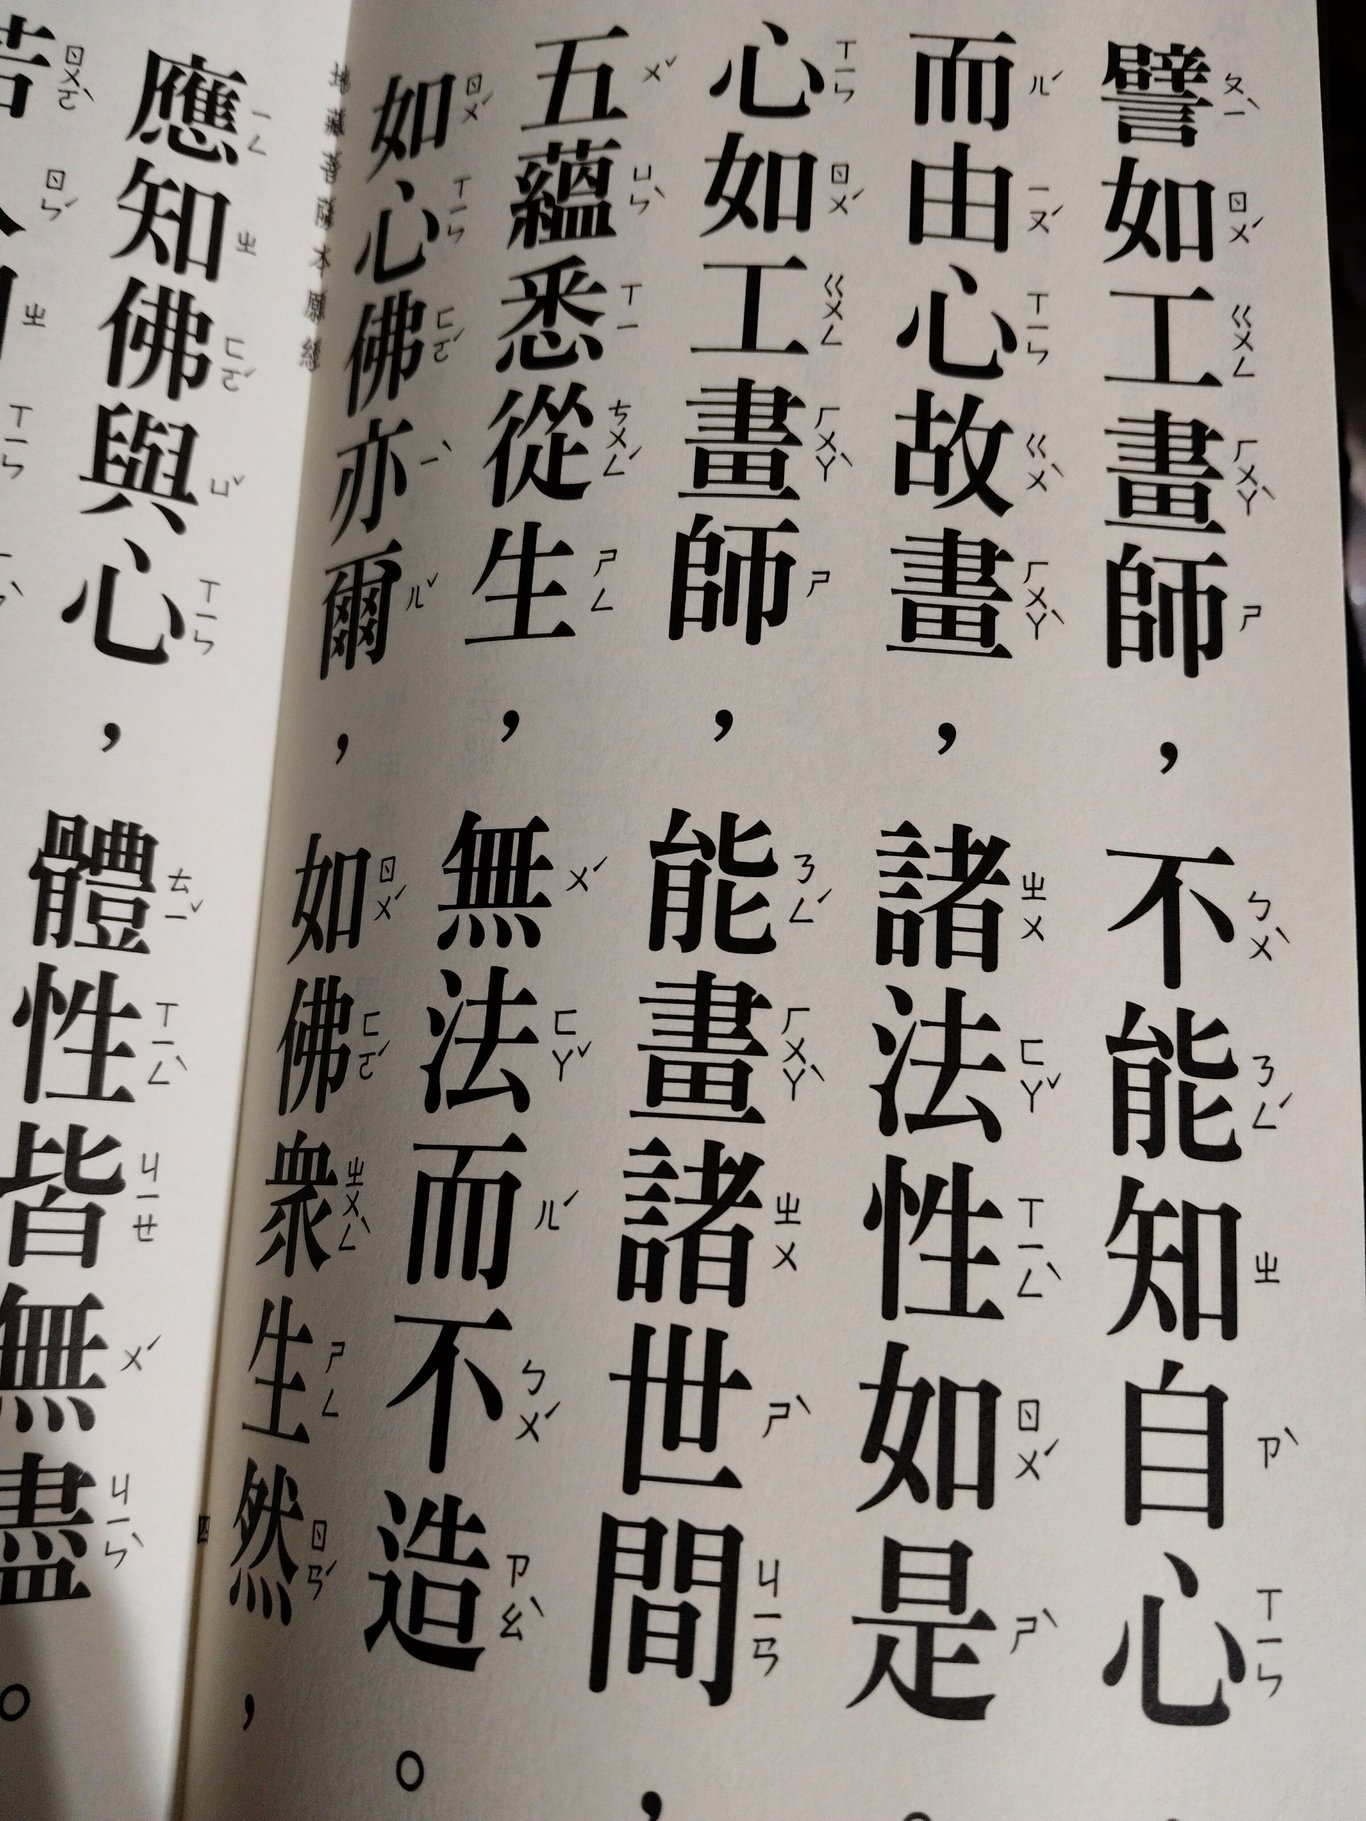 譬如工畫師，不能知自心
而由心故畫，諸法性如是。
心如工畫師，能畫諸世間，
五蘊悉從生，無法而不造。
如心佛亦爾，如佛眾生然，
地藏菩薩本願經
四
應知佛與心，體性皆無盡。
若